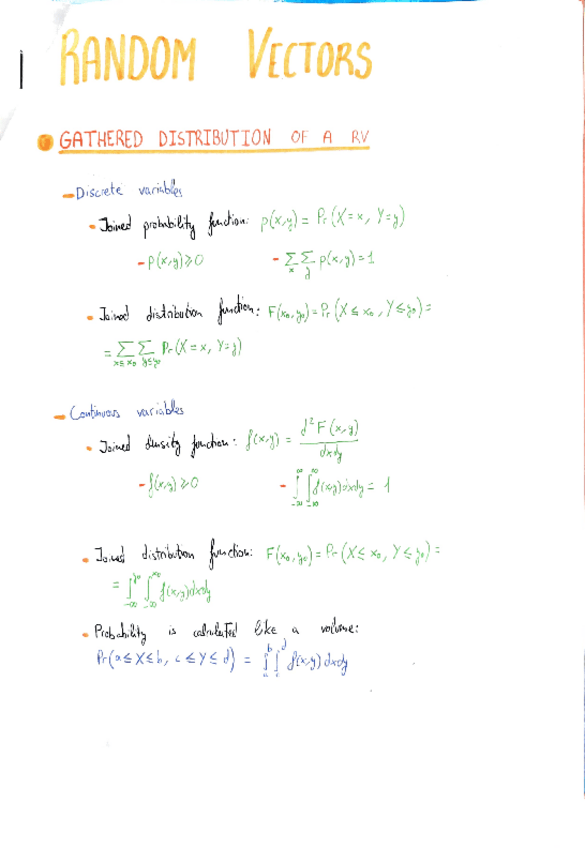 RANDOM VECTORS
GATHERED DISTRIBUTION OF A RV
Discrete variables
• Joined probability function: p(x,y) = Pr(X=x, Y=y)
- p(x,y) ≥ 0 - ∑x ∑y p(x,y) = 1
• Joined distribution function: F(x₀,y₀) = Pr(X ≤ x₀, Y ≤ y₀) =
= ∑x≤x₀ ∑y≤y₀ Pr(X=x, Y=y)
Continuous variables
• Joined density function: f(x,y) = d²F(x,y) / dxdy
- f(x,y) ≥ 0 - ∫_{-∞}^{∞} ∫_{-∞}^{∞} f(x,y) dxdy = 1
• Joined distribution function: F(x₀,y₀) = Pr(X ≤ x₀, Y ≤ y₀) =
= ∫_{-∞}^{y₀} ∫_{-∞}^{x₀} f(x,y) dxdy
• Probability is calculated like a volume:
Pr(a ≤ X ≤ b, c ≤ Y ≤ d) = ∫_a^b ∫_c^d f(x,y) dxdy